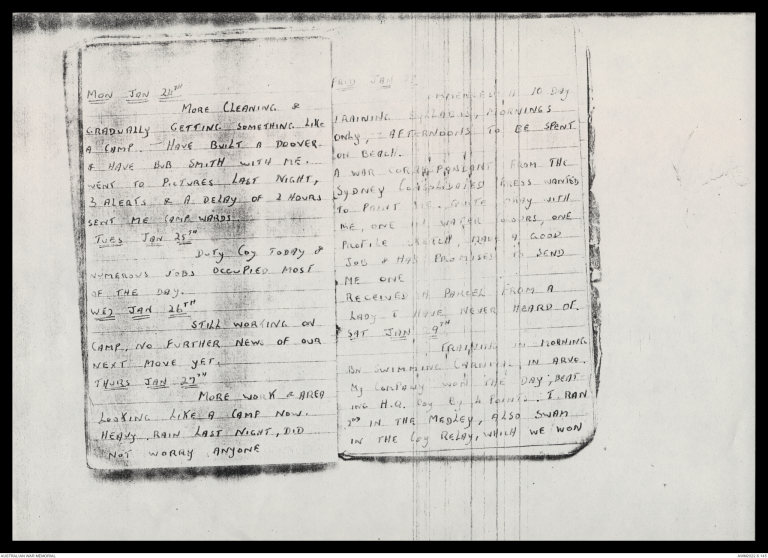 MON JAN 24TH
MORE CLEANING &
GRADUALLY GETTING SOMETHING LIKE
A CAMP. HAVE BUILT A DOOVER
& HAVE BUB SMITH WITH ME.
WENT TO PICTURES LAST NIGHT,
3 ALERTS & A DELAY OF 2 HOURS
SENT ME CAMP WARDS.
TUES JAN 25TH
DUTY COY TODAY &
NUMEROUS JOBS OCCUPIED MOST
OF THE DAY.
WED JAN 26TH
STILL WORKING ON
CAMP, NO FURTHER NEWS OF OUR
NEXT MOVE YET.
THURS JAN 27TH
MORE WORK & AREA
LOOKING LIKE A CAMP NOW.
HEAVY RAIN LAST NIGHT, DID
NOT WORRY ANYONE
FRID JAN 28
COMMENCED A 10 DAY
TRAINING SYLLABUS, MORNINGS
ONLY, AFTERNOONS TO BE SPENT
ON BEACH.
A WAR CORRESPONDANT FROM THE
SYDNEY CONSOLIDATED PRESS WANTED
TO PAINT ME. AWAY WITH
ME, ONE IN WATER COLOURS, ONE
PROFILE SKETCH, MADE A GOOD
JOB & HAS PROMISED TO SEND
ME ONE
RECEIVED A PARCEL FROM A
LADY I HAVE NEVER HEARD OF.
SAT JAN 9TH
TRAINING IN MORNING
BN SWIMMING CARNIVAL IN
MY COMPANY WON THE DAY, BEAT
ING H.Q. COY BY 4 POINTS. I RAN
2ND IN THE MEDLEY, ALSO SWAM
IN THE COY RELAY, WHICH WE WON
AUSTRALIAN WAR MEMORIAL